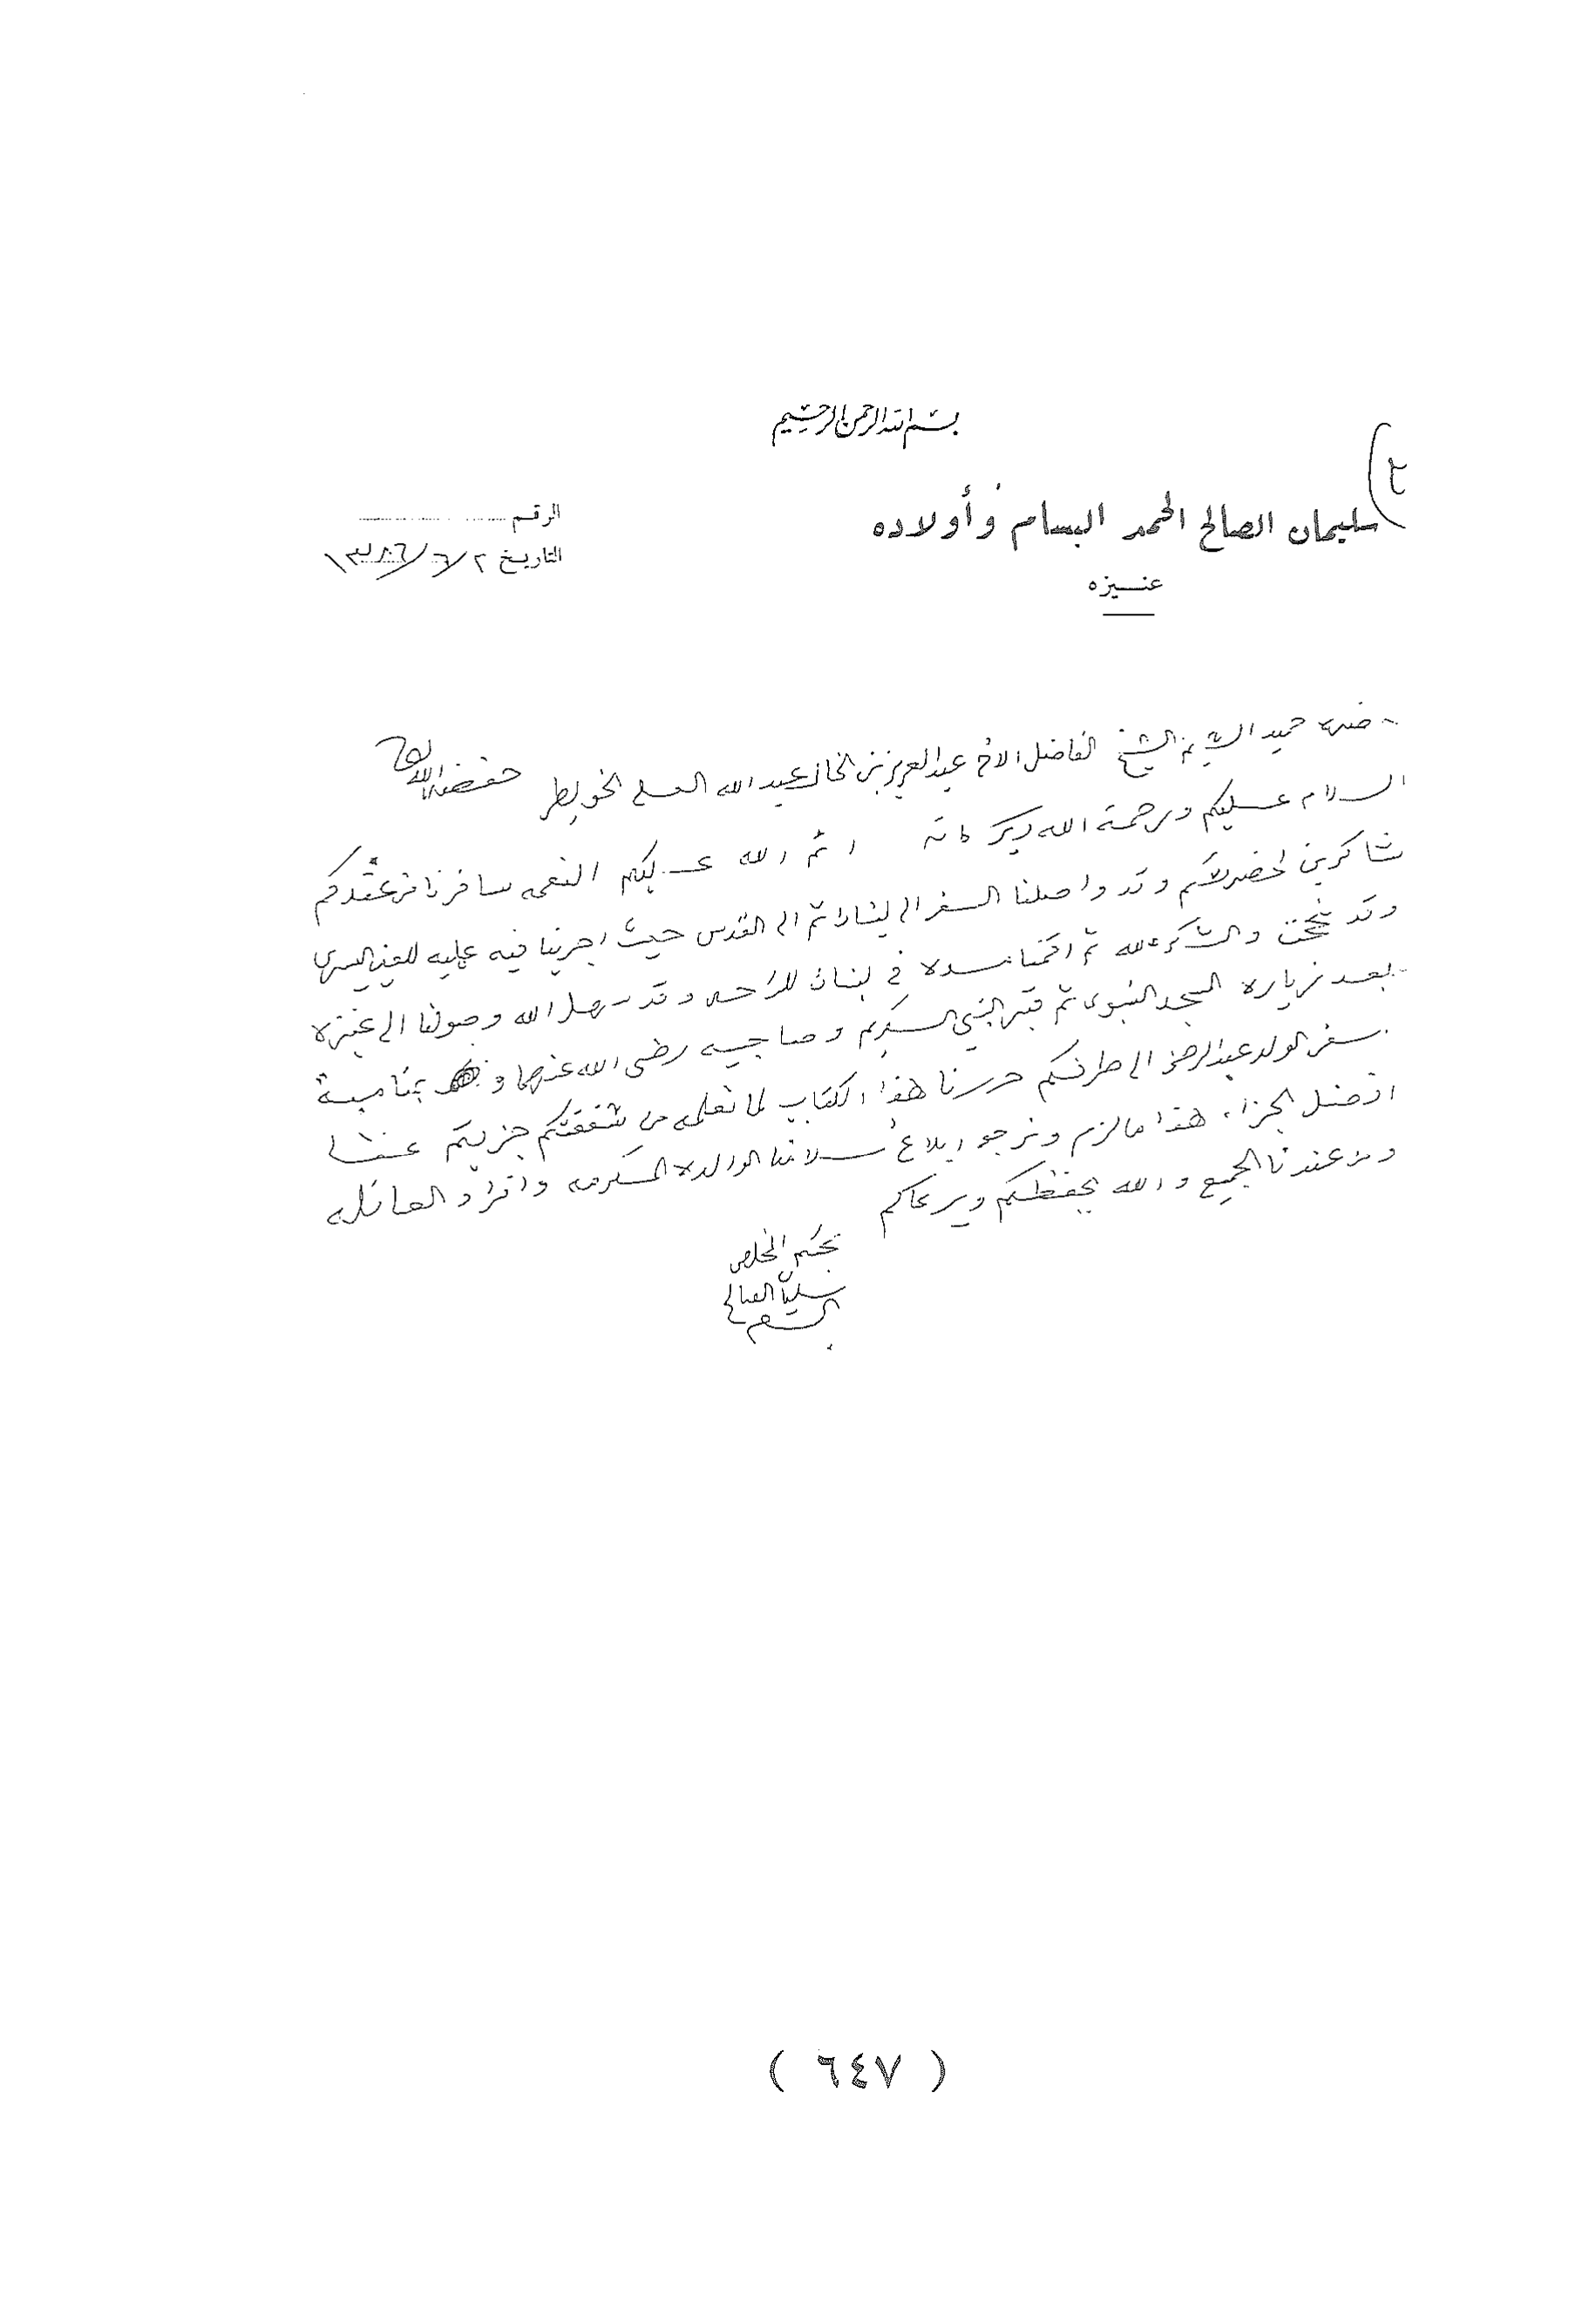 بسم الله الرحمن الرحيم
٢)
سليمان الصالح الحمد البسام وأولاده
عنيزه
الرقم
التاريخ ٢/٦/١٣٨٦
حضرة حميد الشيم الشيخ الفاضل الأخ عبدالعزيز بن الخال عبدالله العلي الخويطر حفظه الله تعالى
السلام عليكم ورحمة الله وبركاته اتم الله عليكم النعمه سافرنا من عندكم
شاكرين لحضرتكم وقد واصلنا السفر الى لبنان ثم الى القدس حيث اجرينا فيه عمليه للعين اليسرى
وقد نجحت والشكر لله ثم اقمنا مده في لبنان للراحه وقد سهل الله وصولنا الى عنيزه
بعد زياره المسجد النبوى ثم قبر النبي الكريم وصاحبيه رضى الله عنهما و بمناسبة
سفر الولد عبدالرحمن الى طرفكم حررنا هذا الكتاب لما نعلمه من شفقتكم جزيتم عنا
افضل الجزاء هذا مالزم ونرجو ابلاغ سلامنا الوالده المكرمه وافراد العائله
ومن عندنا الجميع والله يحفظكم ويرعاكم
محبكم المخلص
سليمان الصالح
البسام
( ٦٤٧ )